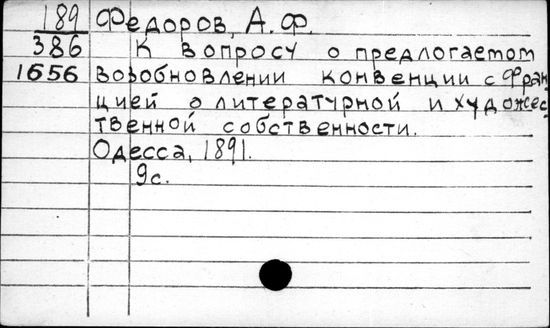 189 Федоров, А. Ф.
386 К вопросу о предлогаетом
1656 возобновлении конвенции с Фран
цией о литературной и художес
твенной собственности.
Одесса, 1891.
9с.